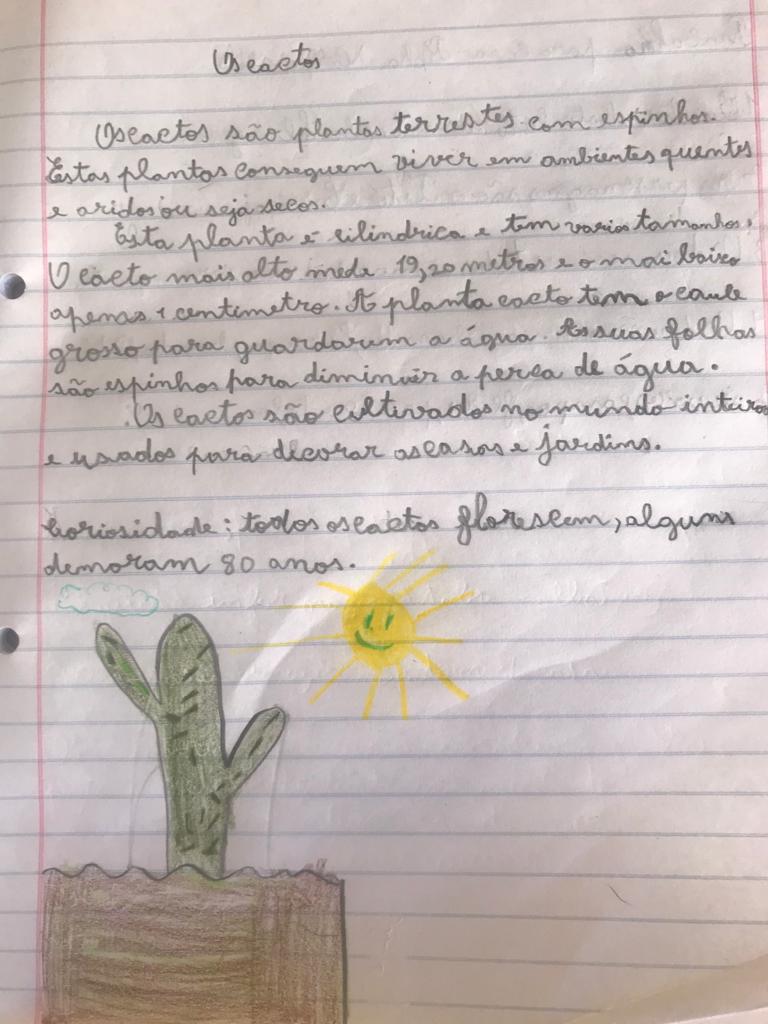 Os cactos
Os cactos são plantas terrestes com espinhos.
Estas plantas conseguem viver em ambientes quentes
e aridos ou seja secos.
Esta planta é cilindrica e tem varios tamanhos.
O cacto mais alto mede 19,20 metros e o mai baixo
apenas 1 centimetro. A planta cacto tem o caule
grosso para guardarem a água. As suas folhas
são espinhos para diminuir a perca de água.
Os cactos são cultivados no mundo inteiro
e usados para decorar as casas e jardins.
Coriosidade: todos os cactos florescem, alguns
demoram 80 anos.